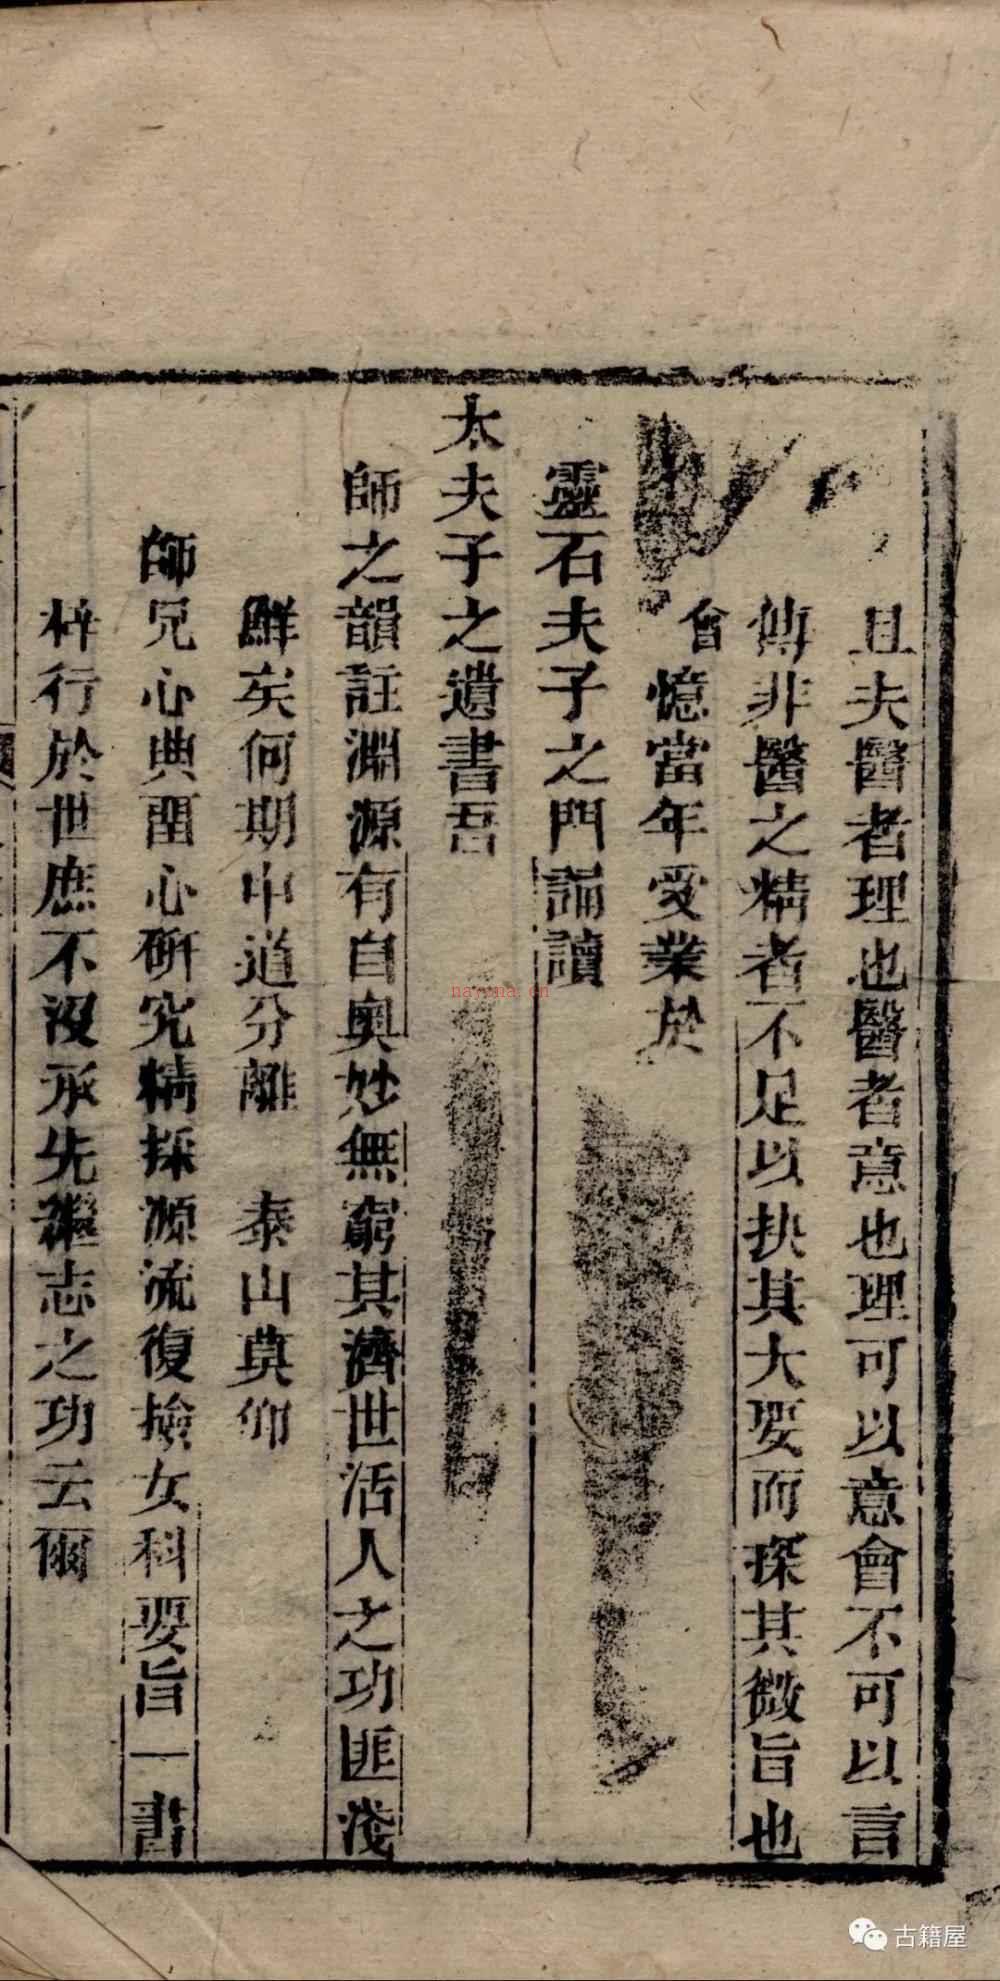 且夫醫者理也醫者意也理可以意會不可以言
傳非醫之精者不足以抉其大要而探其微旨也
曾憶當年受業於
靈石夫子之門誦讀
太夫子之遺書吾
師之韻註淵源有自奧妙無窮其濟世活人之功匪淺
鮮矣何期中道分離 泰山莫仰
師兄心典留心研究精採源流復撿女科要旨一書
梓行於世庶不沒承先繼志之功云爾
nayona.cn
古籍屋